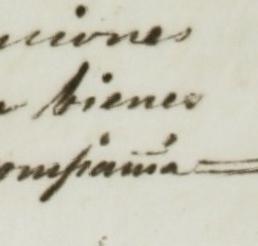 ciones
bienes
ompañia